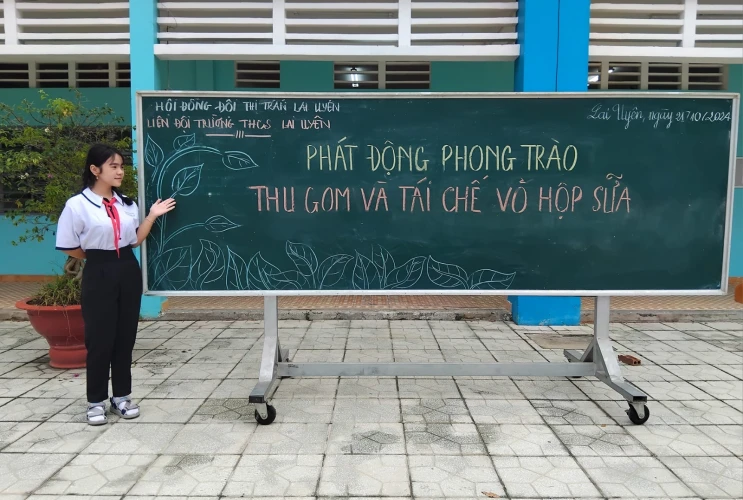 HỘI ĐỒNG ĐỘI THỊ TRẤN LAI UYÊN
LIÊN ĐỘI TRƯỜNG THCS LAI UYÊN
Lai Uyên, ngày 21/10/2024
PHÁT ĐỘNG PHONG TRÀO
THU GOM VÀ TÁI CHẾ VỎ HỘP SỮA